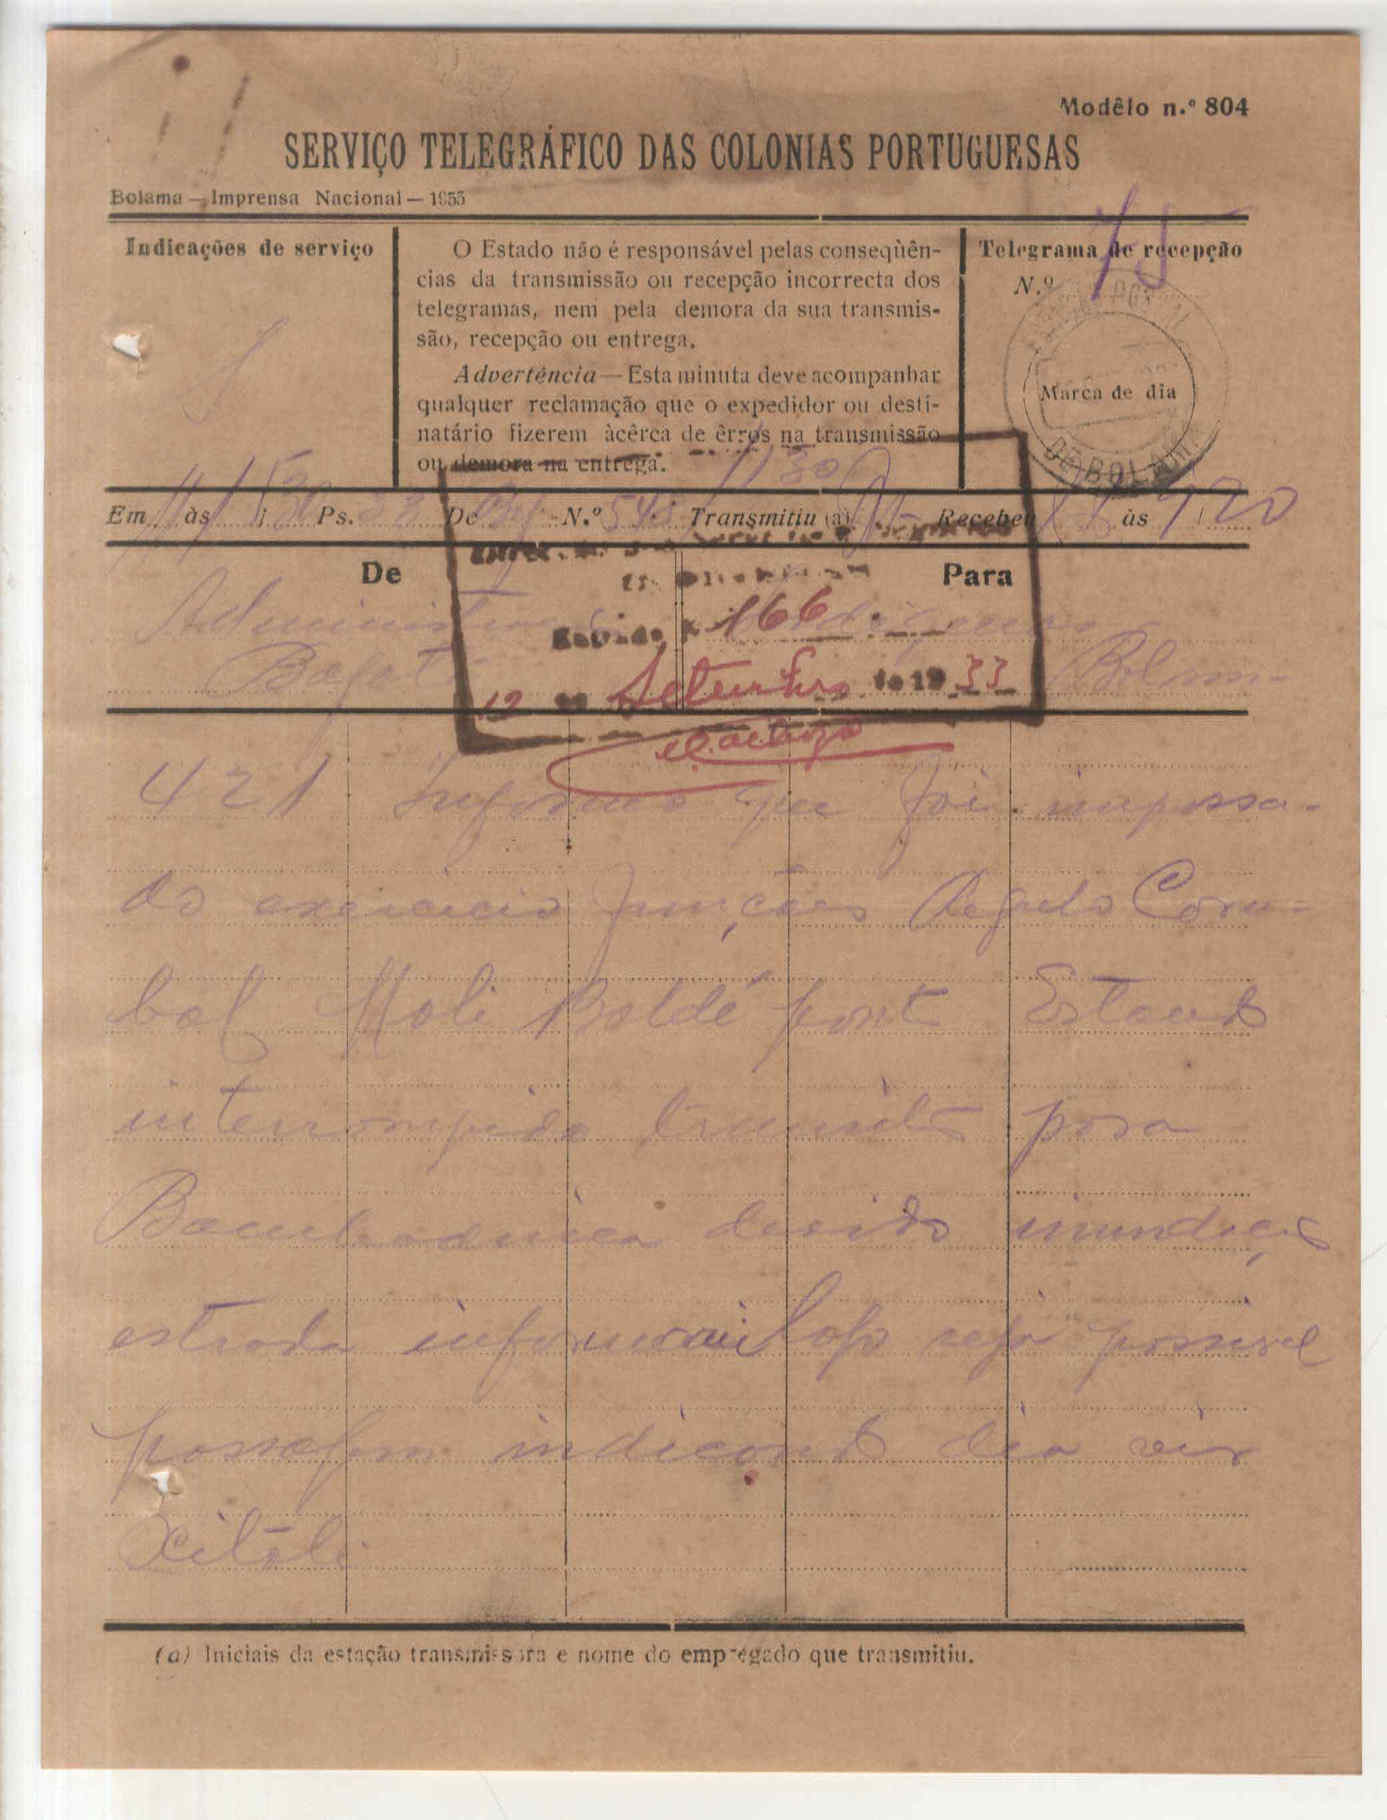 Modêlo n.º 804
SERVIÇO TELEGRÁFICO DAS COLONIAS PORTUGUESAS
Bolama — Imprensa Nacional — 1933
Indicações de serviço
O Estado não é responsável pelas conseqùên-
cias da transmissão ou recepção incorrecta dos
telegramas, nem pela demora da sua transmis-
são, recepção ou entrega.
Advertência — Esta minuta deve acompanhar
qualquer reclamação que o expedidor ou desti-
natário fizerem àcêrca de êrros na transmissão
ou demora na entrega.
Telegrama de recepção
N.º 75
Marca de dia
DE BOLAMA
Em 11 às Ps. De N.º Transmitiu (a) Recebeu às
De
Para
Administrador
Bafatá
Bolama
Entrada 166
12 de Setembro de 1933
421 Informo que foi impossa-
do exercicio funções Regulo Coru-
bal Moli Boldé pont Estando
interrompido transito para
Bambadinca devido inundação
estrada informarei logo seja possivel
passagem indicando dia vir
Xitoli
(a) Iniciais da estação transmissora e nome do empregado que transmitiu.